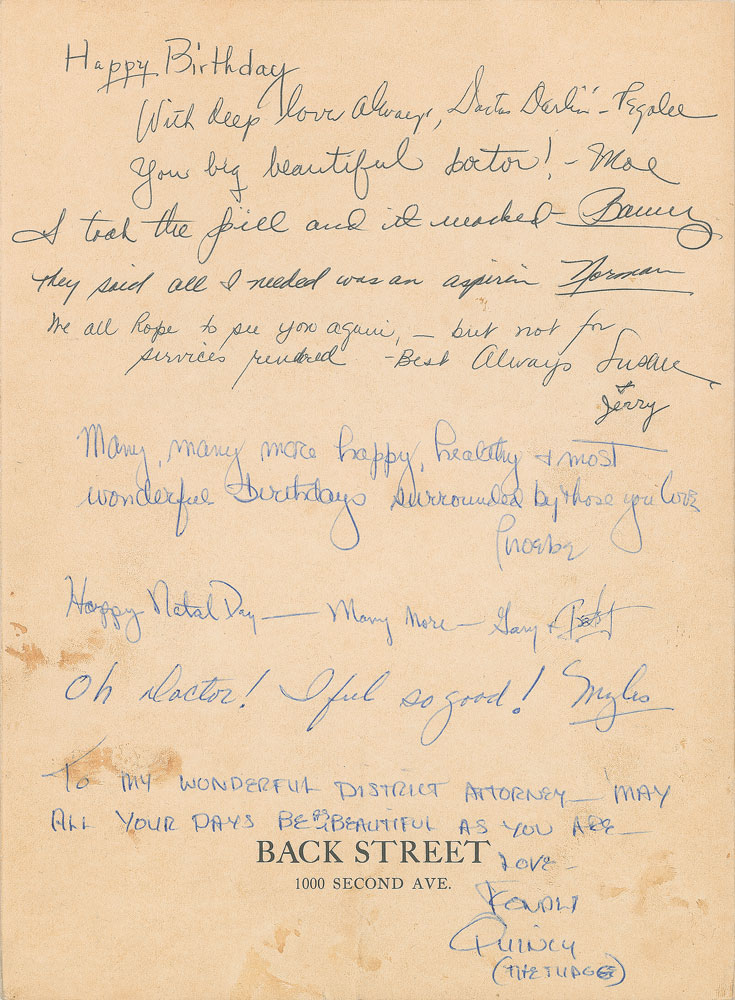 Happy Birthday
With deep love always, Doctor Darlin' - Pegalee
You big beautiful doctor! - Moe
I took the pill and it worked -
They said all I needed was an aspirin Norman
We all hope to see you again, - but not for
services rendred - Best Always Susan
+
Jerry
Many, many more happy, healthy & most
wonderful birthdays surrounded by those you love
Phoebe
Happy Natal Day — Many More — Gary &
Oh Doctor! I feel so good! Myles
To my wonderful District Attorney — May
all your days be as beautiful as you are —
BACK STREET
Love -
1000 SECOND AVE.
Quincy
(The Judge)